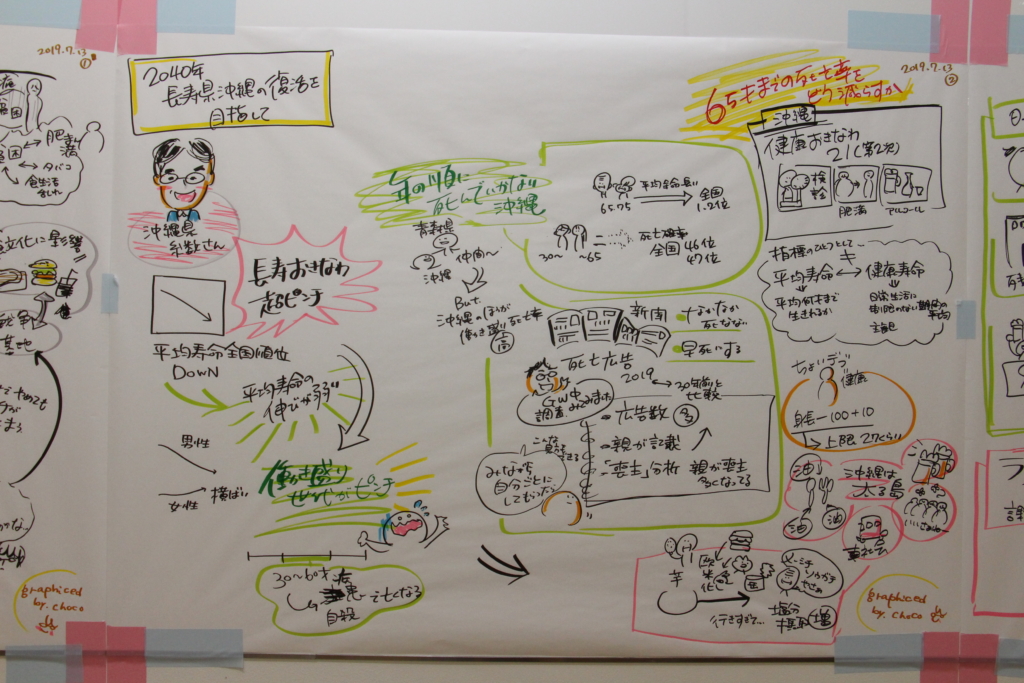 2019.7.13
①
肥満
タバコ
食生活
文化に影響
戦争
基地
graphiced
by. choco
2040年
長寿県沖縄の復活を
目指して
沖縄県
糸数さん
長寿おきなわ
超ピンチ
平均寿命全国順位
DOWN
平均寿命の
伸びが弱
男性
女性
横ばい
働き盛り
世代がピンチ
30〜60才
自殺
亡くなる
年の順に
死んでいかない
沖縄
青森県
沖縄
仲間〜
But
沖縄のほうが
働き盛り死亡率
高
平均余命長い
65.75
全国
1.2位
30〜
〜65
死亡確率
全国 46位
47位
新聞
なかなか
死なない
早死にする
死亡広告
2019
30年前と
比較
GW中
調査してみました
広告数
多
親が記載
「喪主」分析
親が喪主
多くなってる
みなさん
自分ごとに
してもらったら
65才までの死亡率を
どう減らすか
2019.7.13
②
沖縄
健康おきなわ
21(第2次)
検診
肥満
アルコール
指標のひとつとして
平均寿命
健康寿命
平均何才まで
生きれるか
日常生活に
制限のない期間の平均
主観
ちょいデブ
健康
身長－100＋10
上限 27くらい
沖縄は
太る島
油
油
芋
欧米化
行きすぎて…
塩分
摂取
増
graphiced
by. choco